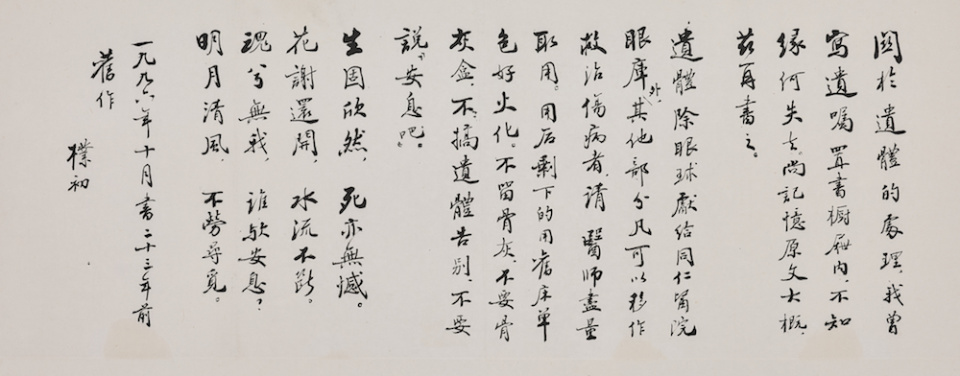 關於遺體的處理，我曾
寫遺囑置書櫥屜内，不知
緣何失去。尚記憶原文大概，
茲再書之。
遺體除眼球獻給同仁醫院
眼庫外，其他部分凡可以移作
救治傷病者，請醫師盡量
取用。用后剩下的用舊床單
包好火化。不留骨灰，不要骨
灰盒，不搞遺體告别，不要
説“安息吧”。
生固欣然，死亦無憾。
花謝還開，水流不斷。
魂兮無我，誰歟安息？
明月清風，不勞尋覓。
一九九六年十月書二十三年前
舊作
樸初